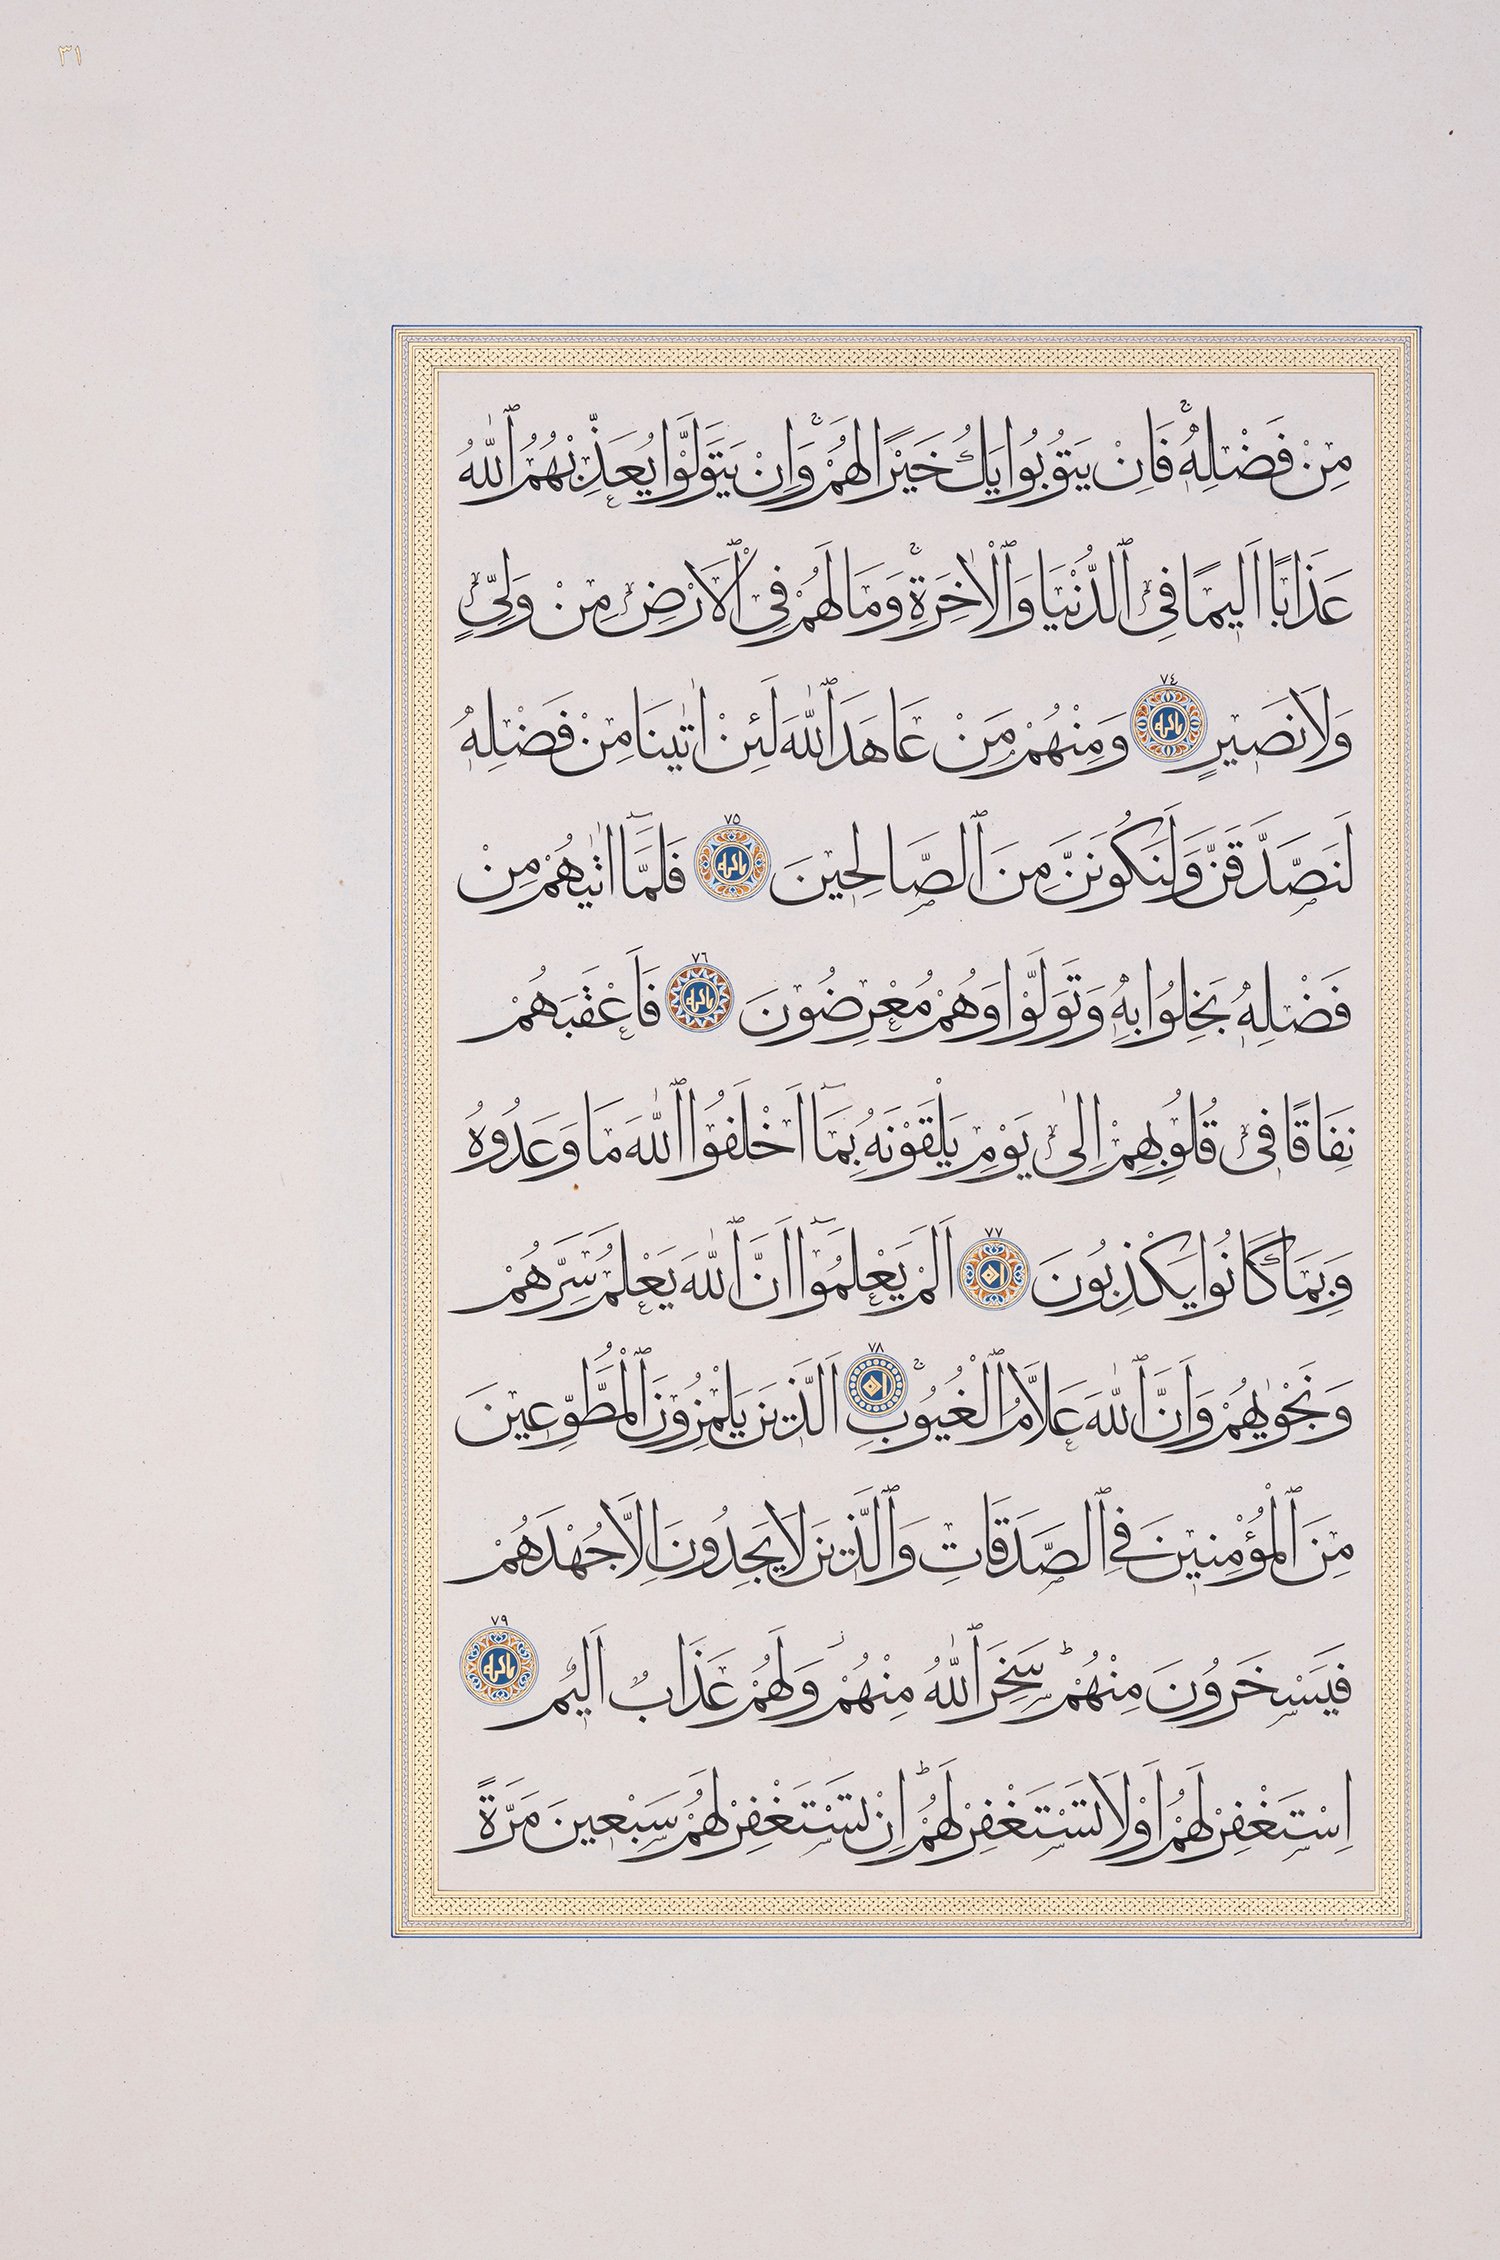 ٣١
مِنْ فَضْلِهٖۚ فَاِنْ يَتُوبُوا يَكُ خَيْرًا لَهُمْۚ وَاِنْ يَتَوَلَّوْا يُعَذِّبْهُمُ ٱللّٰهُ
عَذَابًا اَلِيمًا فِي ٱلدُّنْيَا وَٱلْاٰخِرَةِۚ وَمَا لَهُمْ فِي ٱلْاَرْضِ مِنْ وَلِيٍّ
وَلَا نَصِيرٍ ٧٤ وَمِنْهُمْ مَنْ عَاهَدَ ٱللّٰهَ لَئِنْ اٰتٰينَا مِنْ فَضْلِهٖ
لَنَصَّدَّقَنَّ وَلَنَكُونَنَّ مِنَ ٱلصَّالِحِينَ ٧٥ فَلَمَّٓا اٰتٰيهُمْ مِنْ
فَضْلِهٖ بَخِلُوا بِهٖ وَتَوَلَّوْا وَهُمْ مُعْرِضُونَ ٧٦ فَاَعْقَبَهُمْ
نِفَاقًا فِي قُلُوبِهِمْ اِلٰى يَوْمِ يَلْقَوْنَهُ بِمَٓا اَخْلَفُوا ٱللّٰهَ مَا وَعَدُوهُ
وَبِمَا كَانُوا يَكْذِبُونَ ٧٧ اَلَمْ يَعْلَمُٓوا اَنَّ ٱللّٰهَ يَعْلَمُ سِرَّهُمْ
وَنَجْوٰيهُمْ وَاَنَّ ٱللّٰهَ عَلَّامُ ٱلْغُيُوبِۚ ٧٨ اَلَّذِينَ يَلْمِزُونَ ٱلْمُطَّوِّعِينَ
مِنَ ٱلْمُؤْمِنِينَ فِي ٱلصَّدَقَاتِ وَٱلَّذِينَ لَا يَجِدُونَ اِلَّا جُهْدَهُمْ
فَيَسْخَرُونَ مِنْهُمْؕ سَخِرَ ٱللّٰهُ مِنْهُمْۘ وَلَهُمْ عَذَابٌ اَلِيمٌ ٧٩
اِسْتَغْفِرْ لَهُمْ اَوْ لَا تَسْتَغْفِرْ لَهُمْؕ اِنْ تَسْتَغْفِرْ لَهُمْ سَبْعِينَ مَرَّةً